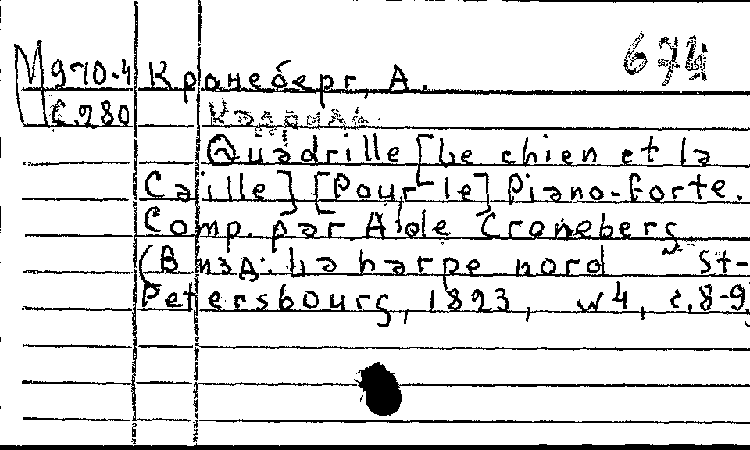 674
М970-4 Кронеберг, А.
С.280 Кадриль.
Quadrille [Le chien et la
Caille] [Pour le] Piano-forte.
Comp. par A. de Croneberg
(В изд: La harpe nord St-
Petersbourg, 1823, w4, с.8-9